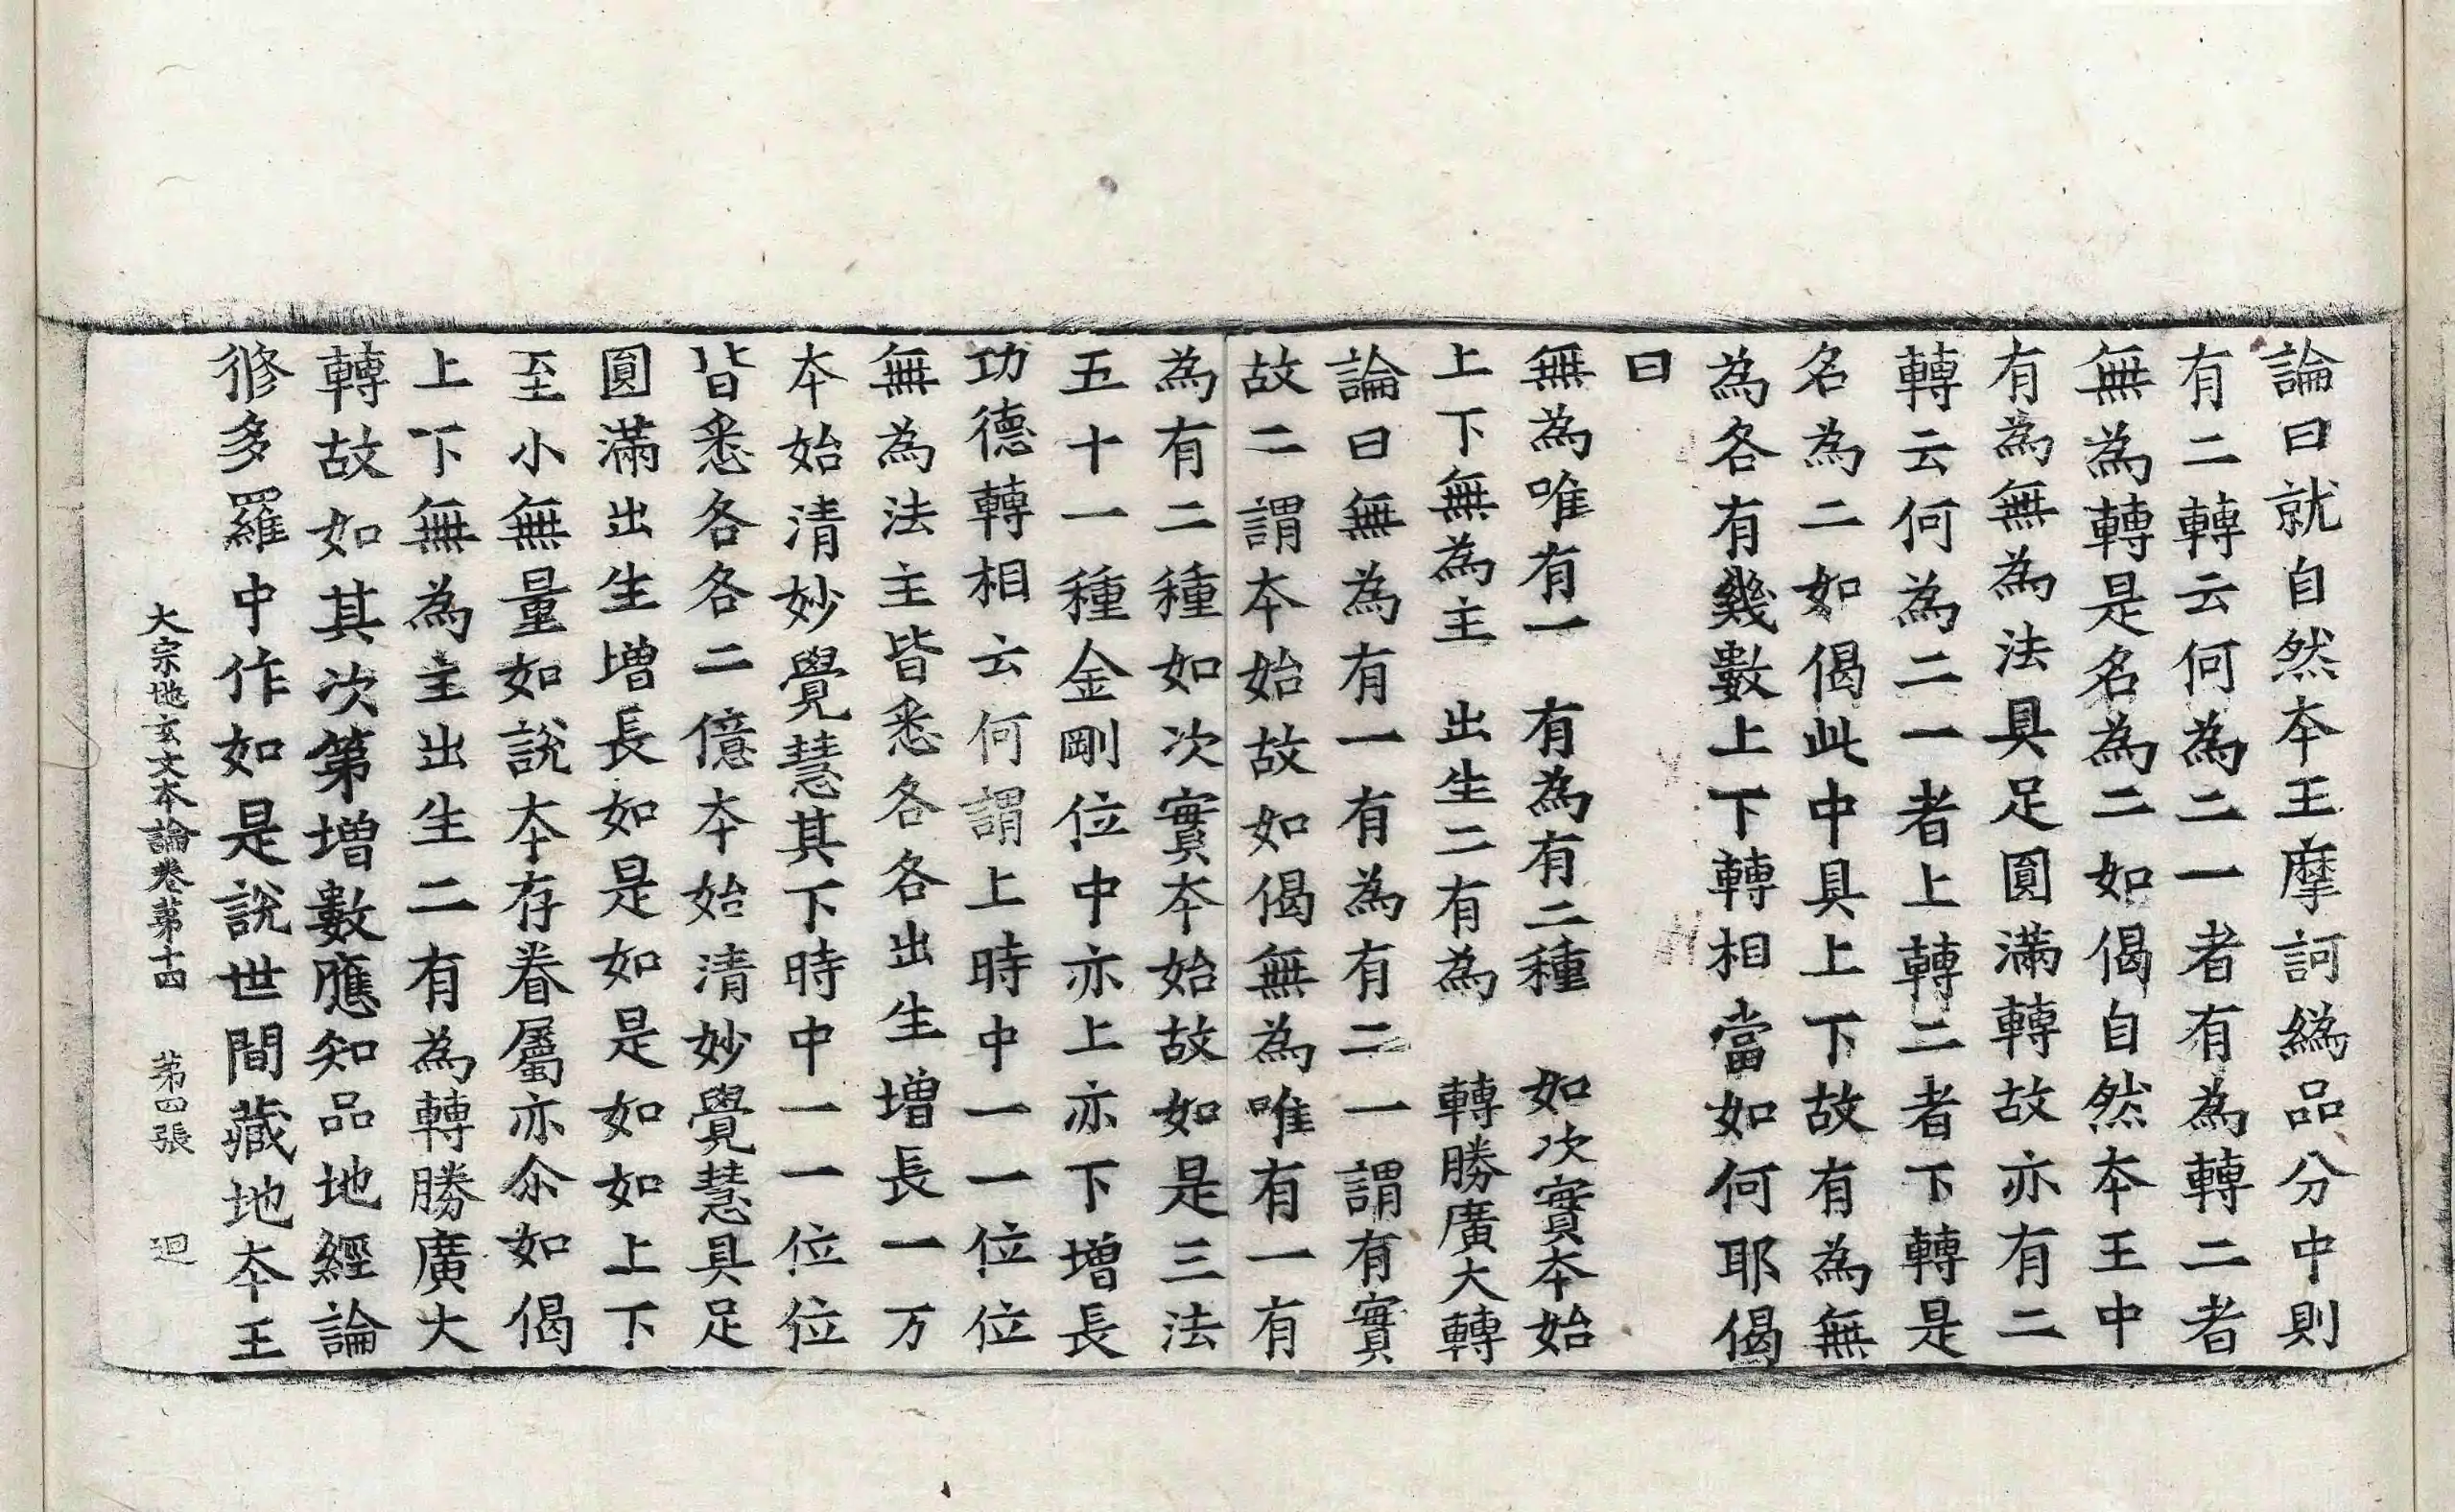 論曰就自然本王摩訶䋿品分中則
有二轉云何為二一者有為轉二者
無為轉是名為二如偈自然本王中
有為無為法具足圓滿轉故亦有二
轉云何為二一者上轉二者下轉是
名為二如偈此中具上下故有為無
為各有幾數上下轉相當如何耶偈
曰
無為唯有一　有為有二種　如次實本始
上下無為主　出生二有為　轉勝廣大轉
論曰無為有一有為有二一謂有實
故二謂本始故如偈無為唯有一有
為有二種如次實本始故如是三法
五十一種金剛位中亦上亦下增長
功德轉相云何謂上時中一一位位
無為法主皆悉各各出生增長一万
本始清妙覺慧其下時中一一位位
皆悉各各二億本始清妙覺慧具足
圓滿出生增長如是如是如如上下
至小無量如說本存眷屬亦尒如偈
上下無為主出生二有為轉勝廣大
轉故如其次第增數應知品地經論
修多羅中作如是說世間藏地本王
大宗地玄文本論卷第十四　第四張　迴